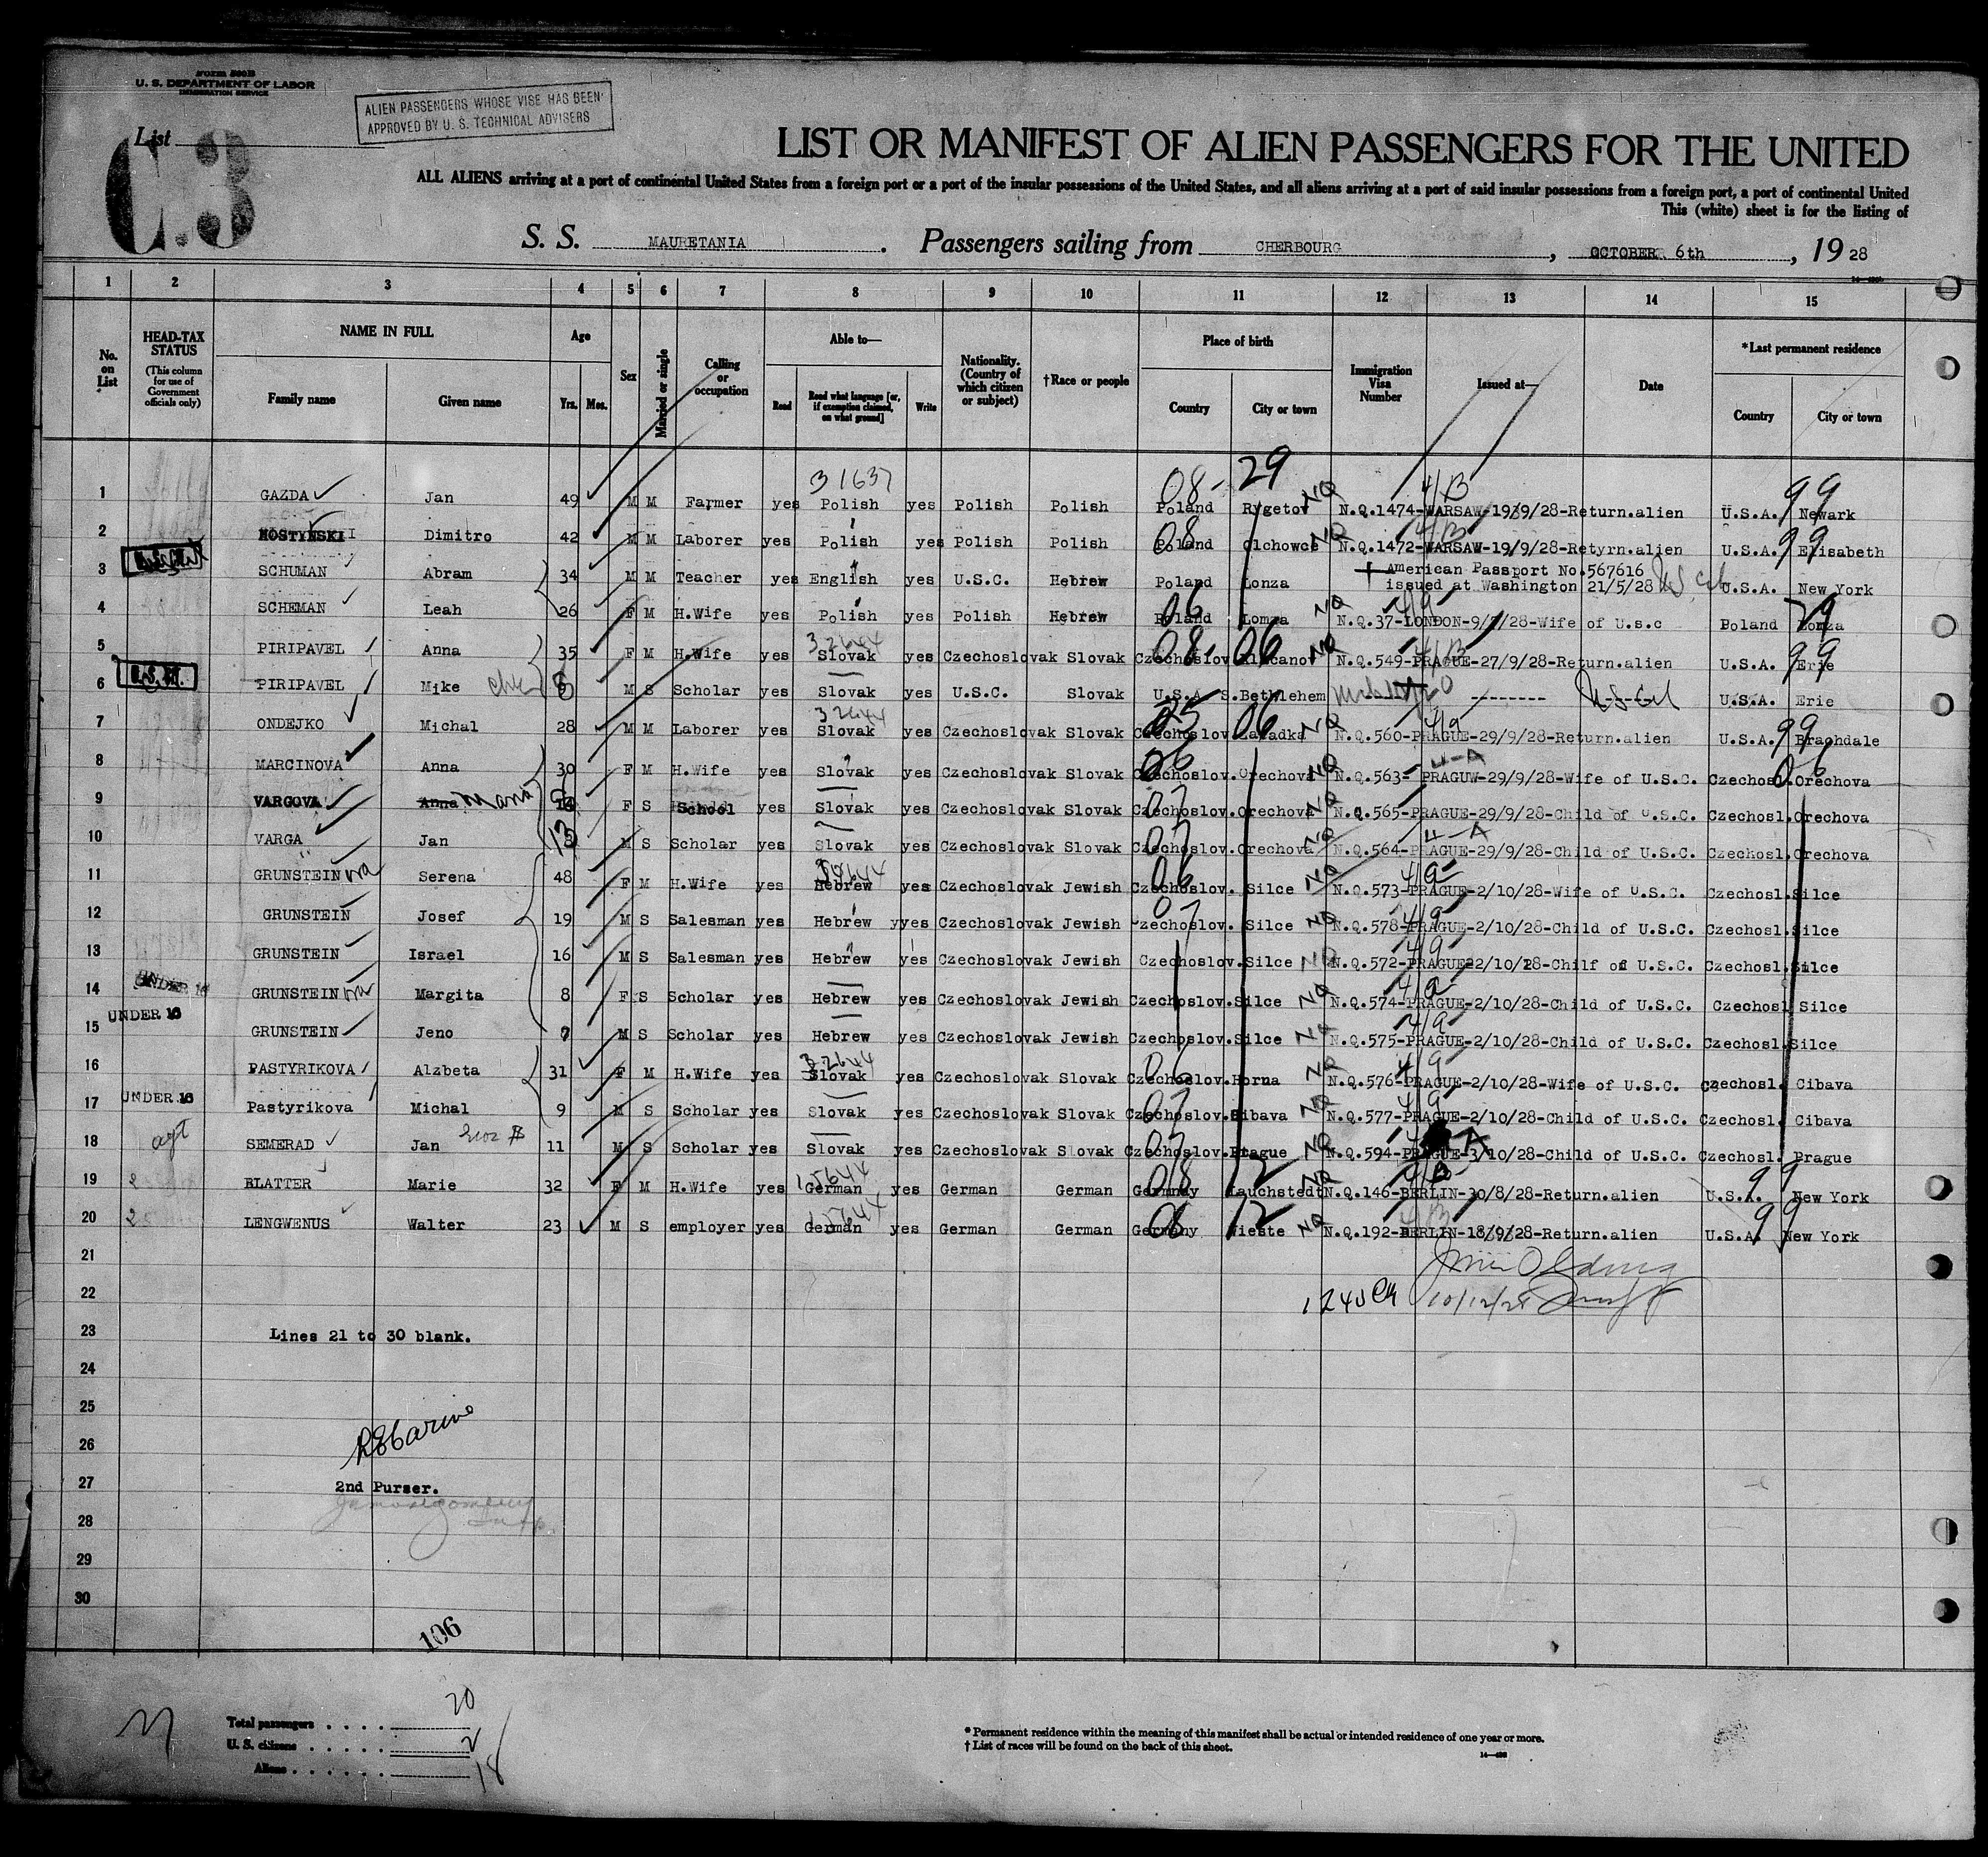 Form 500B
U. S. DEPARTMENT OF LABOR
IMMIGRATION SERVICE
ALIEN PASSENGERS WHOSE VISE HAS BEEN
APPROVED BY U. S. TECHNICAL ADVISERS
List
C.3
LIST OR MANIFEST OF ALIEN PASSENGERS FOR THE UNITED
ALL ALIENS arriving at a port of continental United States from a foreign port or a port of the insular possessions of the United States, and all aliens arriving at a port of said insular possessions from a foreign port, a port of continental United
This (white) sheet is for the listing of
S. S. MAURETANIA. Passengers sailing from CHERBOURG, OCTOBER 6th, 19 28
1 2 3 4 5 6 7 8 9 10 11 12 13 14 15
No. on List
HEAD-TAX STATUS (This column for use of Government officials only)
NAME IN FULL
Family name Given name
Age
Yrs. Mos.
Sex
Married or single
Calling or occupation
Able to—
Read Read what language [or, if exemption claimed, on what ground] Write
Nationality. (Country of which citizen or subject)
†Race or people
Place of birth
Country City or town
Immigration Visa Number
Issued at—
Date
*Last permanent residence
Country City or town
3 1637 08- 29 4/B 99
1 GAZDA Jan 49 M M Farmer yes Polish yes Polish Polish Poland Rygetov NQ N.Q.1474-WARSAW-19/9/28-Return.alien U.S.A. Newark
2 HOSTYNSKI Dimitro 42 M M Laborer yes Polish yes Polish Polish 08 Poland Olchowce NQ N.Q.1472-WARSAW-19/9/28-Retyrn.alien U.S.A. 99 Elisabeth
3 SCHUMAN Abram 34 M M Teacher yes English yes U.S.C. Hebrew Poland Lonza American Passport No.567616
issued at Washington 21/5/28 U.S.A. New York
4 SCHEMAN Leah 26 F M H.Wife yes Polish yes Polish Hebrew 06 Poland Lomza NQ N.Q.37-LONDON-9/ /28-Wife of U.s.c Poland Lonza
5 PIRIPAVEL Anna 35 F M H.Wife yes Slovak yes Czechoslovak Slovak Czechoslov. 08- 06 NQ N.Q.549-PRAGUE-27/9/28-Return.alien U.S.A. 99 Erie
U.S.Cit.
6 PIRIPAVEL Mike M S Scholar yes Slovak yes U.S.C. Slovak U.S.A S.Bethlehem -------- U-S-Cit U.S.A. Erie
7 ONDEJKO Michal 28 M M Laborer yes Slovak yes Czechoslovak Slovak Czechoslov. 06 NQ N.Q.560-PRAGUE-29/9/28-Return.alien U.S.A. 99 Brachdale
8 MARCINOVA Anna 30 F M H.Wife yes Slovak yes Czechoslovak Slovak 06 Czechoslov.Orechova NQ N.Q.563- PRAGUW-29/9/28-Wife of U.S.C. Czechosl. 06 Orechova
9 VARGOVA Anna 14 F S School yes Slovak yes Czechoslovak Slovak 07 Czechoslov.Orechova NQ N.Q.565-PRAGUE-29/9/28-Child of U.S.C. Czechosl.Orechova
10 VARGA Jan 13 M S Scholar yes Slovak yes Czechoslovak Slovak 07 Czechoslov.Orechova NQ N.Q.564-PRAGUE-29/9/28-Child of U.S.C. Czechosl.Orechova
11 GRUNSTEIN Serena 48 F M H.Wife yes Hebrew yes Czechoslovak Jewish 06 Czechoslov. Silce NQ N.Q.573-PRAGUE-2/10/28-Wife of U.S.C. Czechosl.Silce
12 GRUNSTEIN Josef 19 M S Salesman yes Hebrew yyes Czechoslovak Jewish 07 Czechoslov. Silce NQ N.Q.578-PRAGUE-2/10/28-Child of U.S.C. Czechosl.Silce
13 GRUNSTEIN Israel 16 M S Salesman yes Hebrew yes Czechoslovak Jewish Czechoslov.Silce NQ N.Q.572-PRAGUE22/10/28-Chilf of U.S.C. Czechosl.Silce
UNDER 16
14 GRUNSTEIN Margita 8 F S Scholar yes Hebrew yes Czechoslovak Jewish Czechoslov.Silce NQ N.Q.574-PRAGUE-2/10/28-Child of U.S.C. Czechosl Silce
UNDER 16
15 GRUNSTEIN Jeno 7 M S Scholar yes Hebrew yes Czechoslovak Jewish Czechoslov.Silce NQ N.Q.575-PRAGUE-2/10/28-Child of U.S.C. Czechosl.Silce
16 PASTYRIKOVA Alzbeta 31 F M H.Wife yes 32644 Slovak yes Czechoslovak Slovak 06 Czechoslov.Horna NQ N.Q.576-PRAGUE-2/10/28-Wife of U.S.C. Czechosl. Cibava
UNDER 16
17 Pastyrikova Michal 9 M S Scholar yes Slovak yes Czechoslovak Slovak 07 Czechoslov.Sibava NQ N.Q.577-PRAGUE-2/10/28-Child of U.S.C. Czechosl. Cibava
18 SEMERAD Jan 11 M S Scholar yes Slovak yes Czechoslovak Slovak 07 Czechoslov.Prague NQ N.Q.594-PRAGUE-3/10/28-Child of U.S.C. Czechosl. Prague
19 BLATTER Marie 32 F M H.Wife yes German yes German German 08 Germany 12 Lauchstedt NQ N.Q.146-BERLIN-30/8/28-Return.alien U.S.A. 99 New York
20 LENGWENUS Walter 23 M S employer yes German yes German German 06 Germany 12 Nieste NQ N.Q.192-BERLIN-18/9/28-Return.alien U.S.A. 99 New York
21
22 10/12/28
23 Lines 21 to 30 blank.
24
25
26
27 2nd Purser.
28
29
30
106
Total passengers . . . . 20
U. S. citizens . . . . . 2
Aliens . . . . . . 18
* Permanent residence within the meaning of this manifest shall be actual or intended residence of one year or more.
† List of races will be found on the back of this sheet.